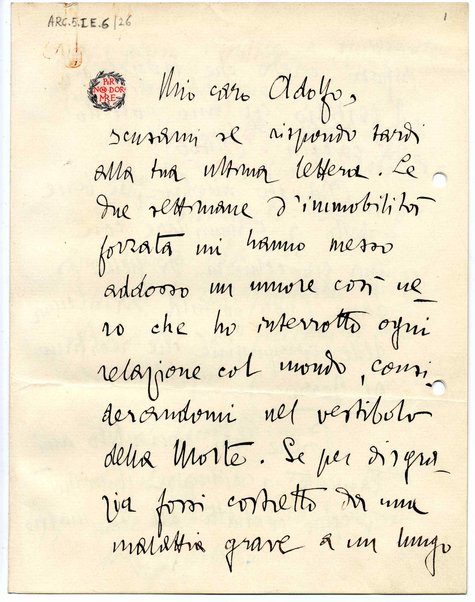 ARC.5.I E.6/26
1
PAR
NON DOR
MIRE
Mio caro Adolfo,
scusami se rispondo tardi
alla tua ultima lettera. Le
due settimane d'immobilità
forzata mi hanno messo
addosso un umore così ne-
ro che ho interrotto ogni
relazione col mondo, consi-
derandomi nel vestibolo
della Morte. Se per disgra-
zia fossi costretto da una
malattia grave a un lungo